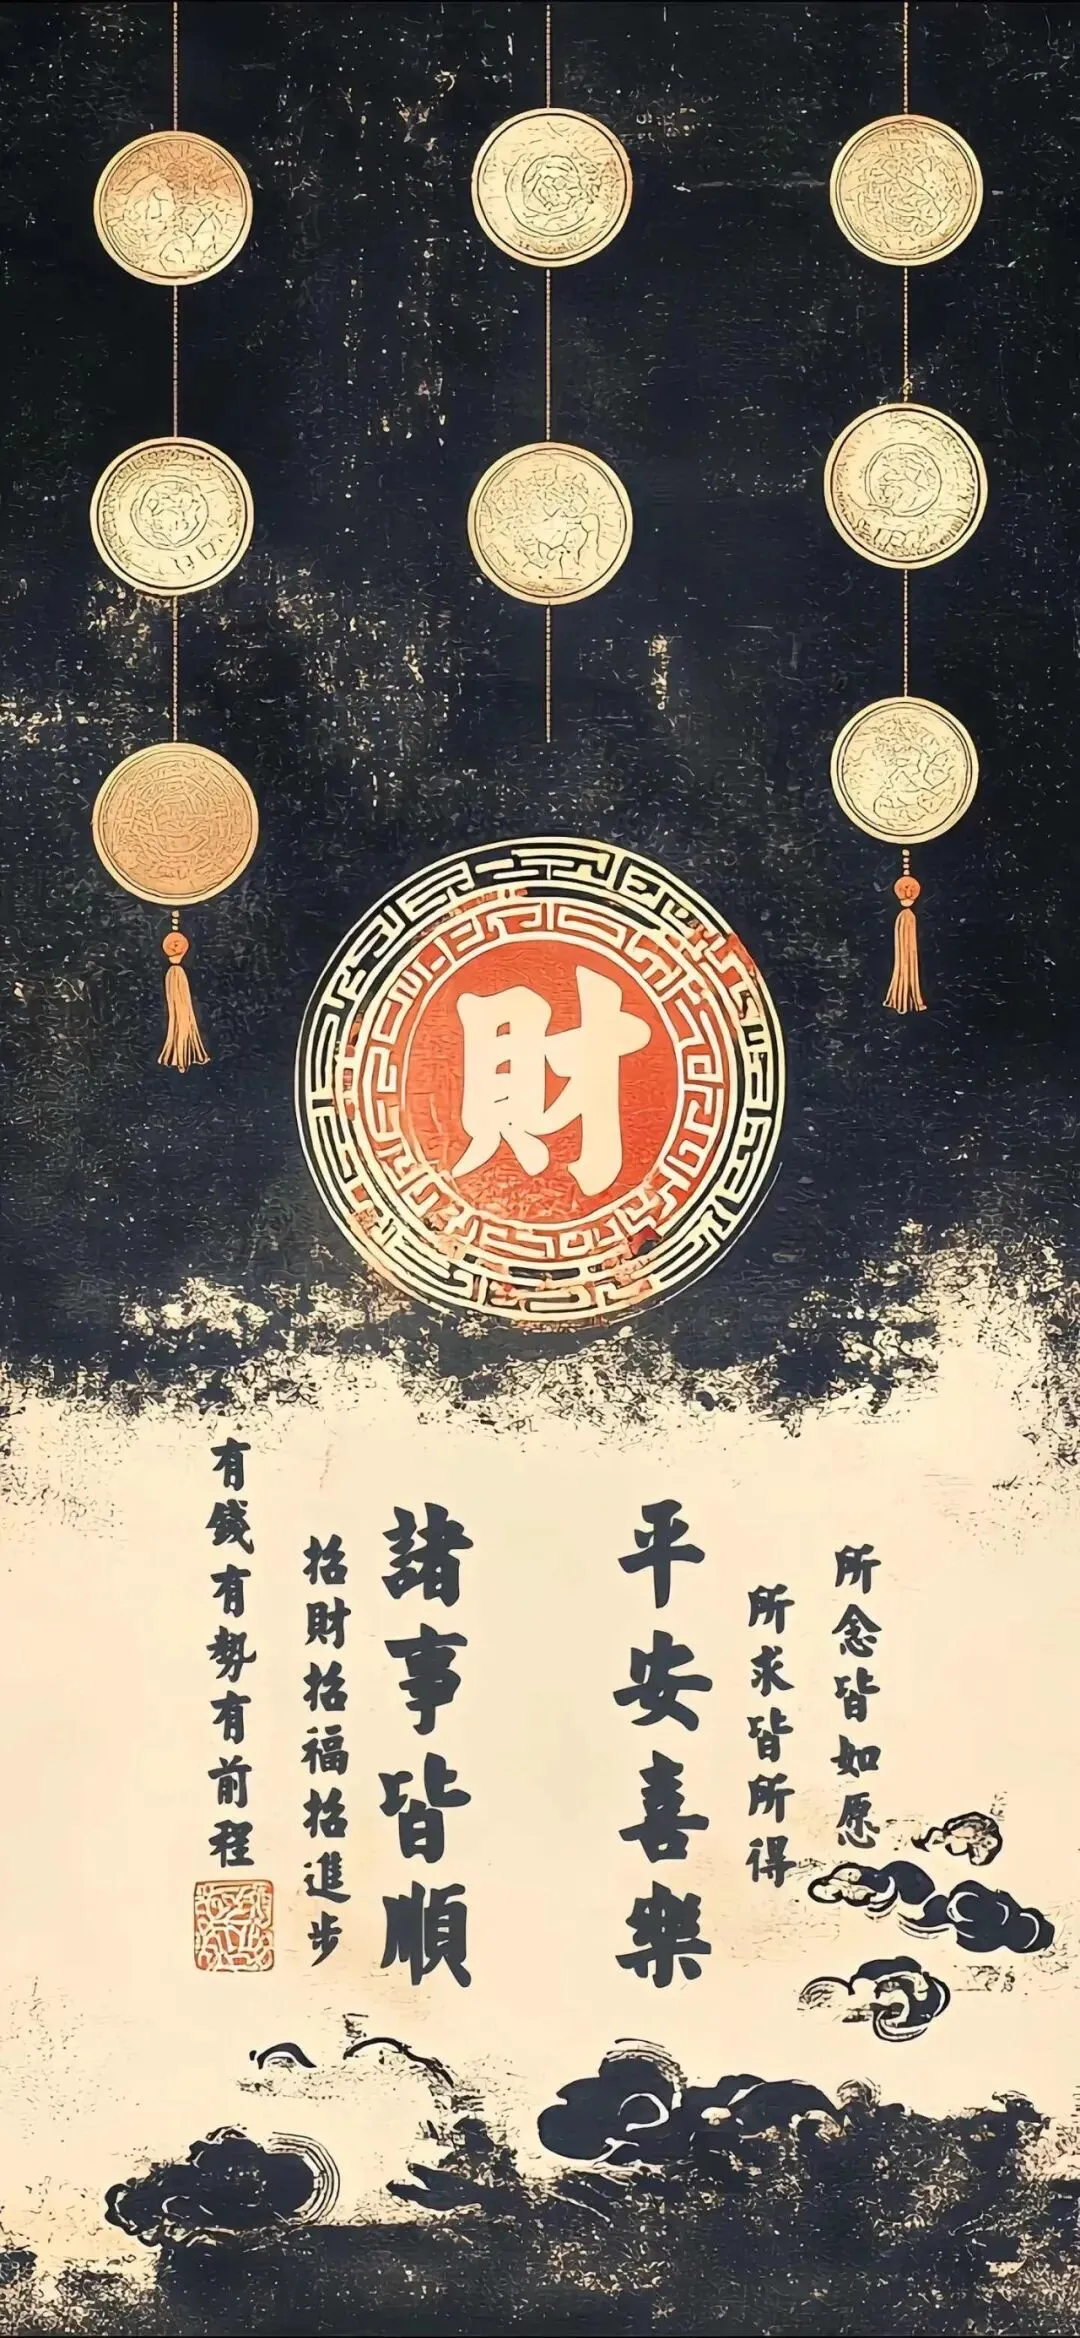 財
所念皆如愿
所求皆所得
平安喜樂
諸事皆順
招財招福招進步
有錢有勢有前程